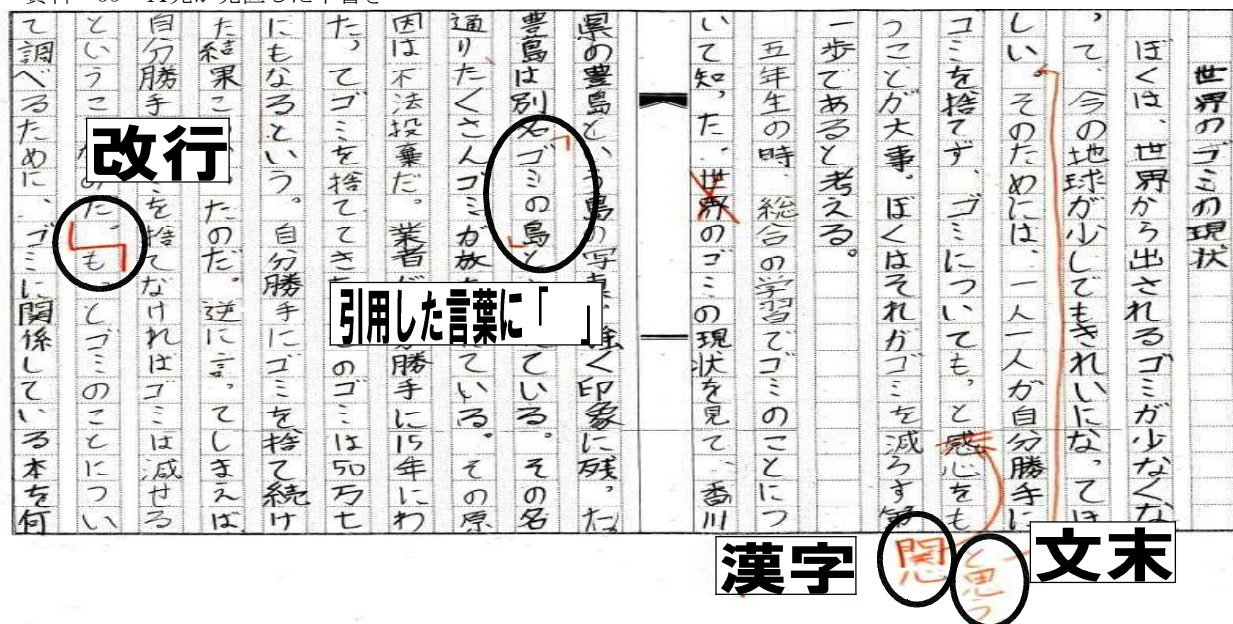 世界のゴミの現状
ぼくは、世界から出されるゴミが少なくな
って、今の地球が少しでもきれいになってほ
しい。そのためには、一人一人が自分勝手に
ゴミを捨てず、ゴミについてもっと感心をも
つことが大事。ぼくはそれがゴミを減らす第
一歩であると考える。
五年生の時、総合の学習でゴミのことにつ
いて知った。世界のゴミの現状を見て、香川
県の豊島という島の写真 強く印象に残った。
豊島は別名「ゴミの島」と ている。その名
通りたくさんゴミが放 ている。その原
因は不法投棄だ。業者が 勝手に15年にわ
たってゴミを捨ててき のゴミは50万七
にもなるという。自分勝手にゴミを捨て続け
た結果こ たのだ。逆に言ってしまえば、
自分勝手 を捨てなければゴミは減せる
というこ た。もっとゴミのことについ
て調べるために、ゴミに関係している本を何
改行
引用した言葉に「 」
漢字
関心
と思う
文末